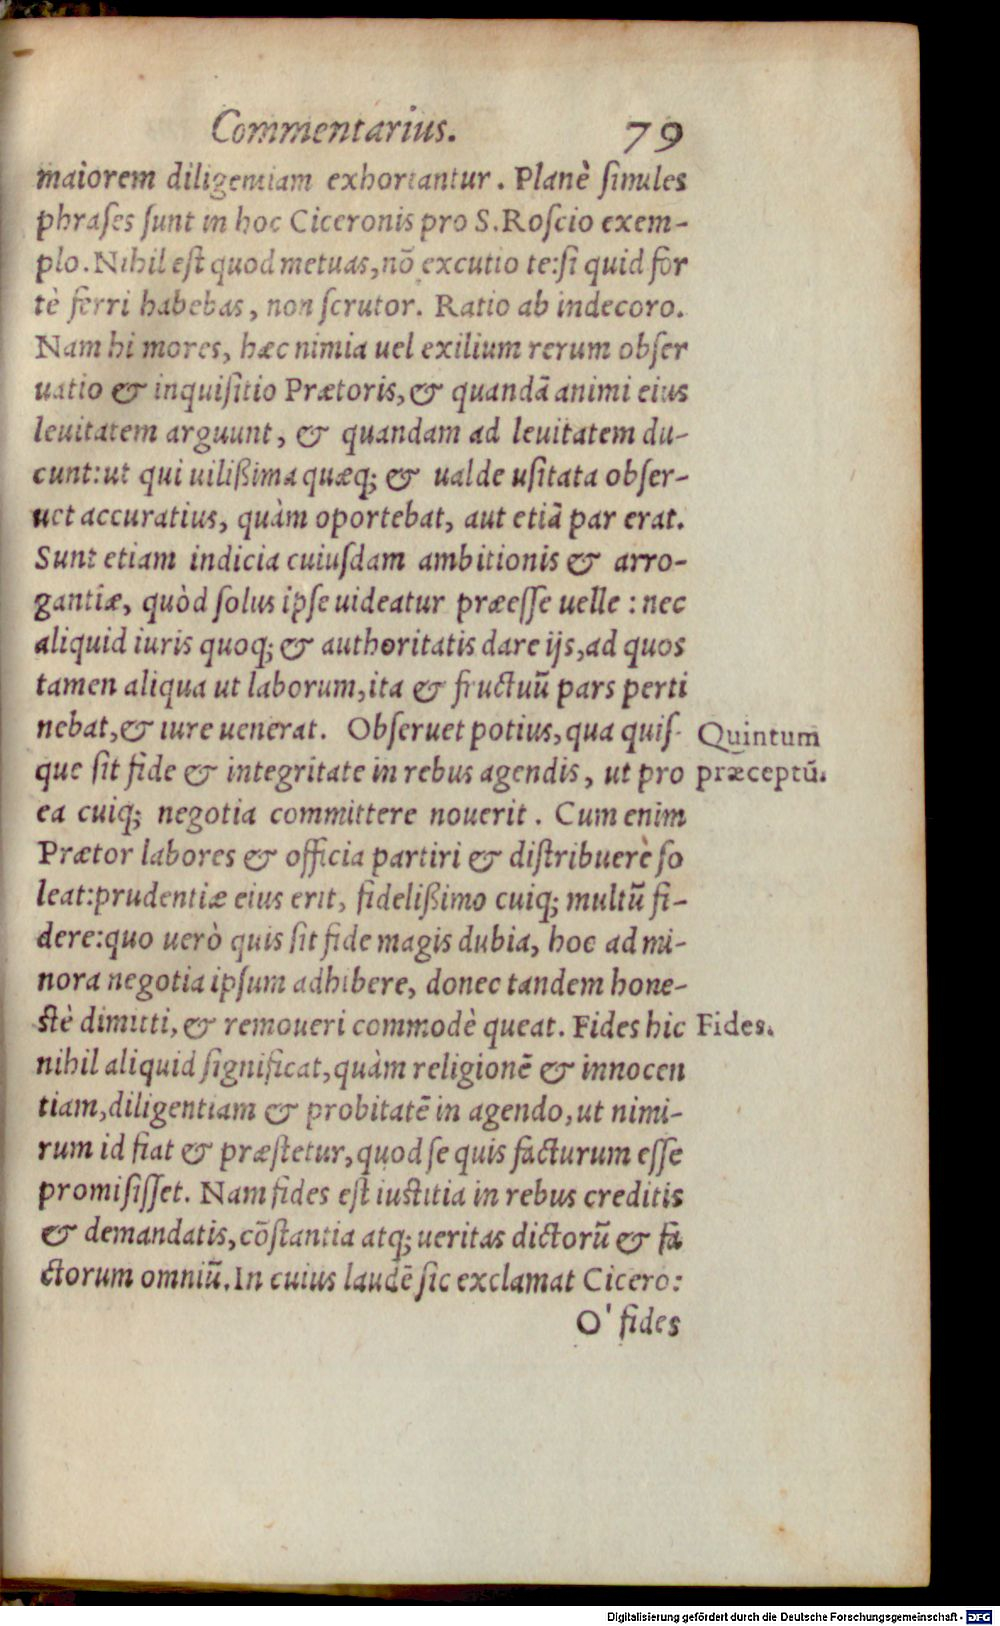 Commentarius. 79
maiorem diligentiam exhortantur. Planè similes
phrases sunt in hoc Ciceronis pro S. Roscio exem-
plo. Nihil est quod metuas, nō excutio te: si quid for
tè ferri habebas, non scrutor. Ratio ab indecoro.
Nam hi mores, hæc nimia uel exilium rerum obser
uatio & inquisitio Prætoris, & quandā animi eius
leuitatem arguunt, & quandam ad leuitatem du-
cunt: ut qui uilißima quæq; & ualde usitata obser-
uet accuratius, quàm oportebat, aut etiā par erat.
Sunt etiam indicia cuiusdam ambitionis & arro-
gantiæ, quòd solus ipse uideatur præesse uelle: nec
aliquid iuris quoq; & authoritatis dare ijs, ad quos
tamen aliqua ut laborum, ita & fructuū pars perti
nebat, & iure uenerat. Obseruet potius, qua quis- Quintum
que sit fide & integritate in rebus agendis, ut pro præceptū.
ea cuiq; negotia committere nouerit. Cum enim
Prætor labores & officia partiri & distribuerè so
leat: prudentiæ eius erit, fidelißimo cuiq; multū fi-
dere: quo uerò quis sit fide magis dubia, hoc ad mi-
nora negotia ipsum adhibere, donec tandem hone-
stè dimitti, & remoueri commodè queat. Fides hic Fides.
nihil aliquid significat, quàm religionē & innocen
tiam, diligentiam & probitatē in agendo, ut nimi-
rum id fiat & præstetur, quod se quis facturum esse
promisisset. Nam fides est iustitia in rebus creditis
& demandatis, cōstantia atq; ueritas dictorū & fa
ctorum omniū. In cuius laudē sic exclamat Cicero:
O' fides
Digitalisierung gefördert durch die Deutsche Forschungsgemeinschaft - DFG